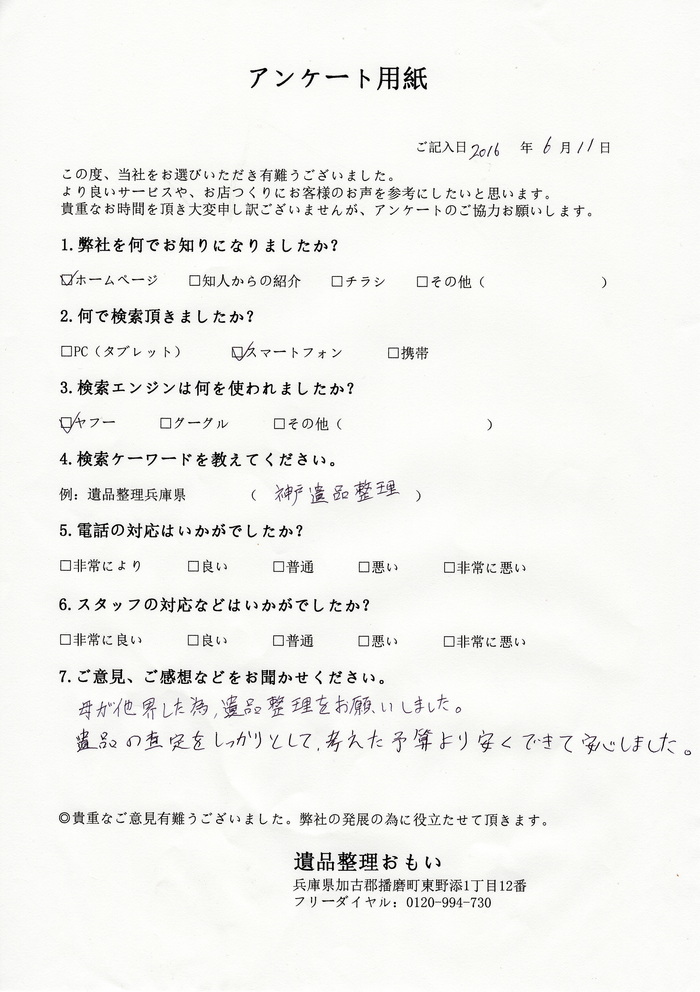 アンケート用紙
ご記入日2016 年 6 月 11 日
この度、当社をお選びいただき有難うございました。
より良いサービスや、お店つくりにお客様のお声を参考にしたいと思います。
貴重なお時間を頂き大変申し訳ございませんが、アンケートのご協力お願いします。
1.弊社を何でお知りになりましたか?
☑ホームページ □知人からの紹介 □チラシ □その他（ ）
2.何で検索頂きましたか?
□PC（タブレット） ☑スマートフォン □携帯
3.検索エンジンは何を使われましたか?
☑ヤフー □グーグル □その他（ ）
4.検索ケーワードを教えてください。
例：遺品整理兵庫県 （ 神戸遺品整理 ）
5.電話の対応はいかがでしたか?
□非常により □良い □普通 □悪い □非常に悪い
6.スタッフの対応などはいかがでしたか?
□非常に良い □良い □普通 □悪い □非常に悪い
7.ご意見、ご感想などをお聞かせください。
母が他界した為、遺品整理をお願いしました。
遺品の査定をしっかりとして、考えた予算より安くできて安心しました。
◎貴重なご意見有難うございました。弊社の発展の為に役立たせて頂きます。
遺品整理おもい
兵庫県加古郡播磨町東野添1丁目12番
フリーダイヤル：0120-994-730